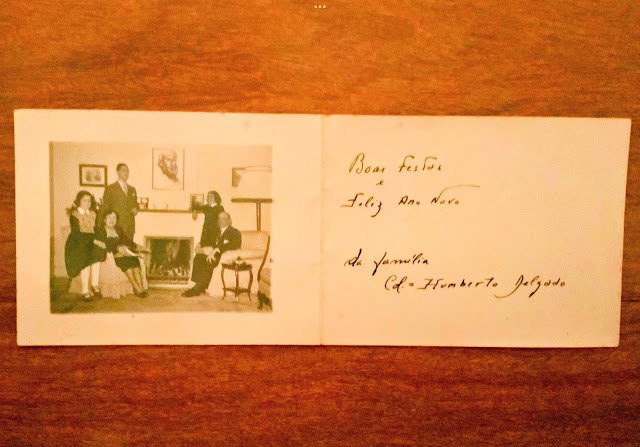 Boas Festas
e
Feliz Ano Novo
da família
Cel= Humberto Delgado